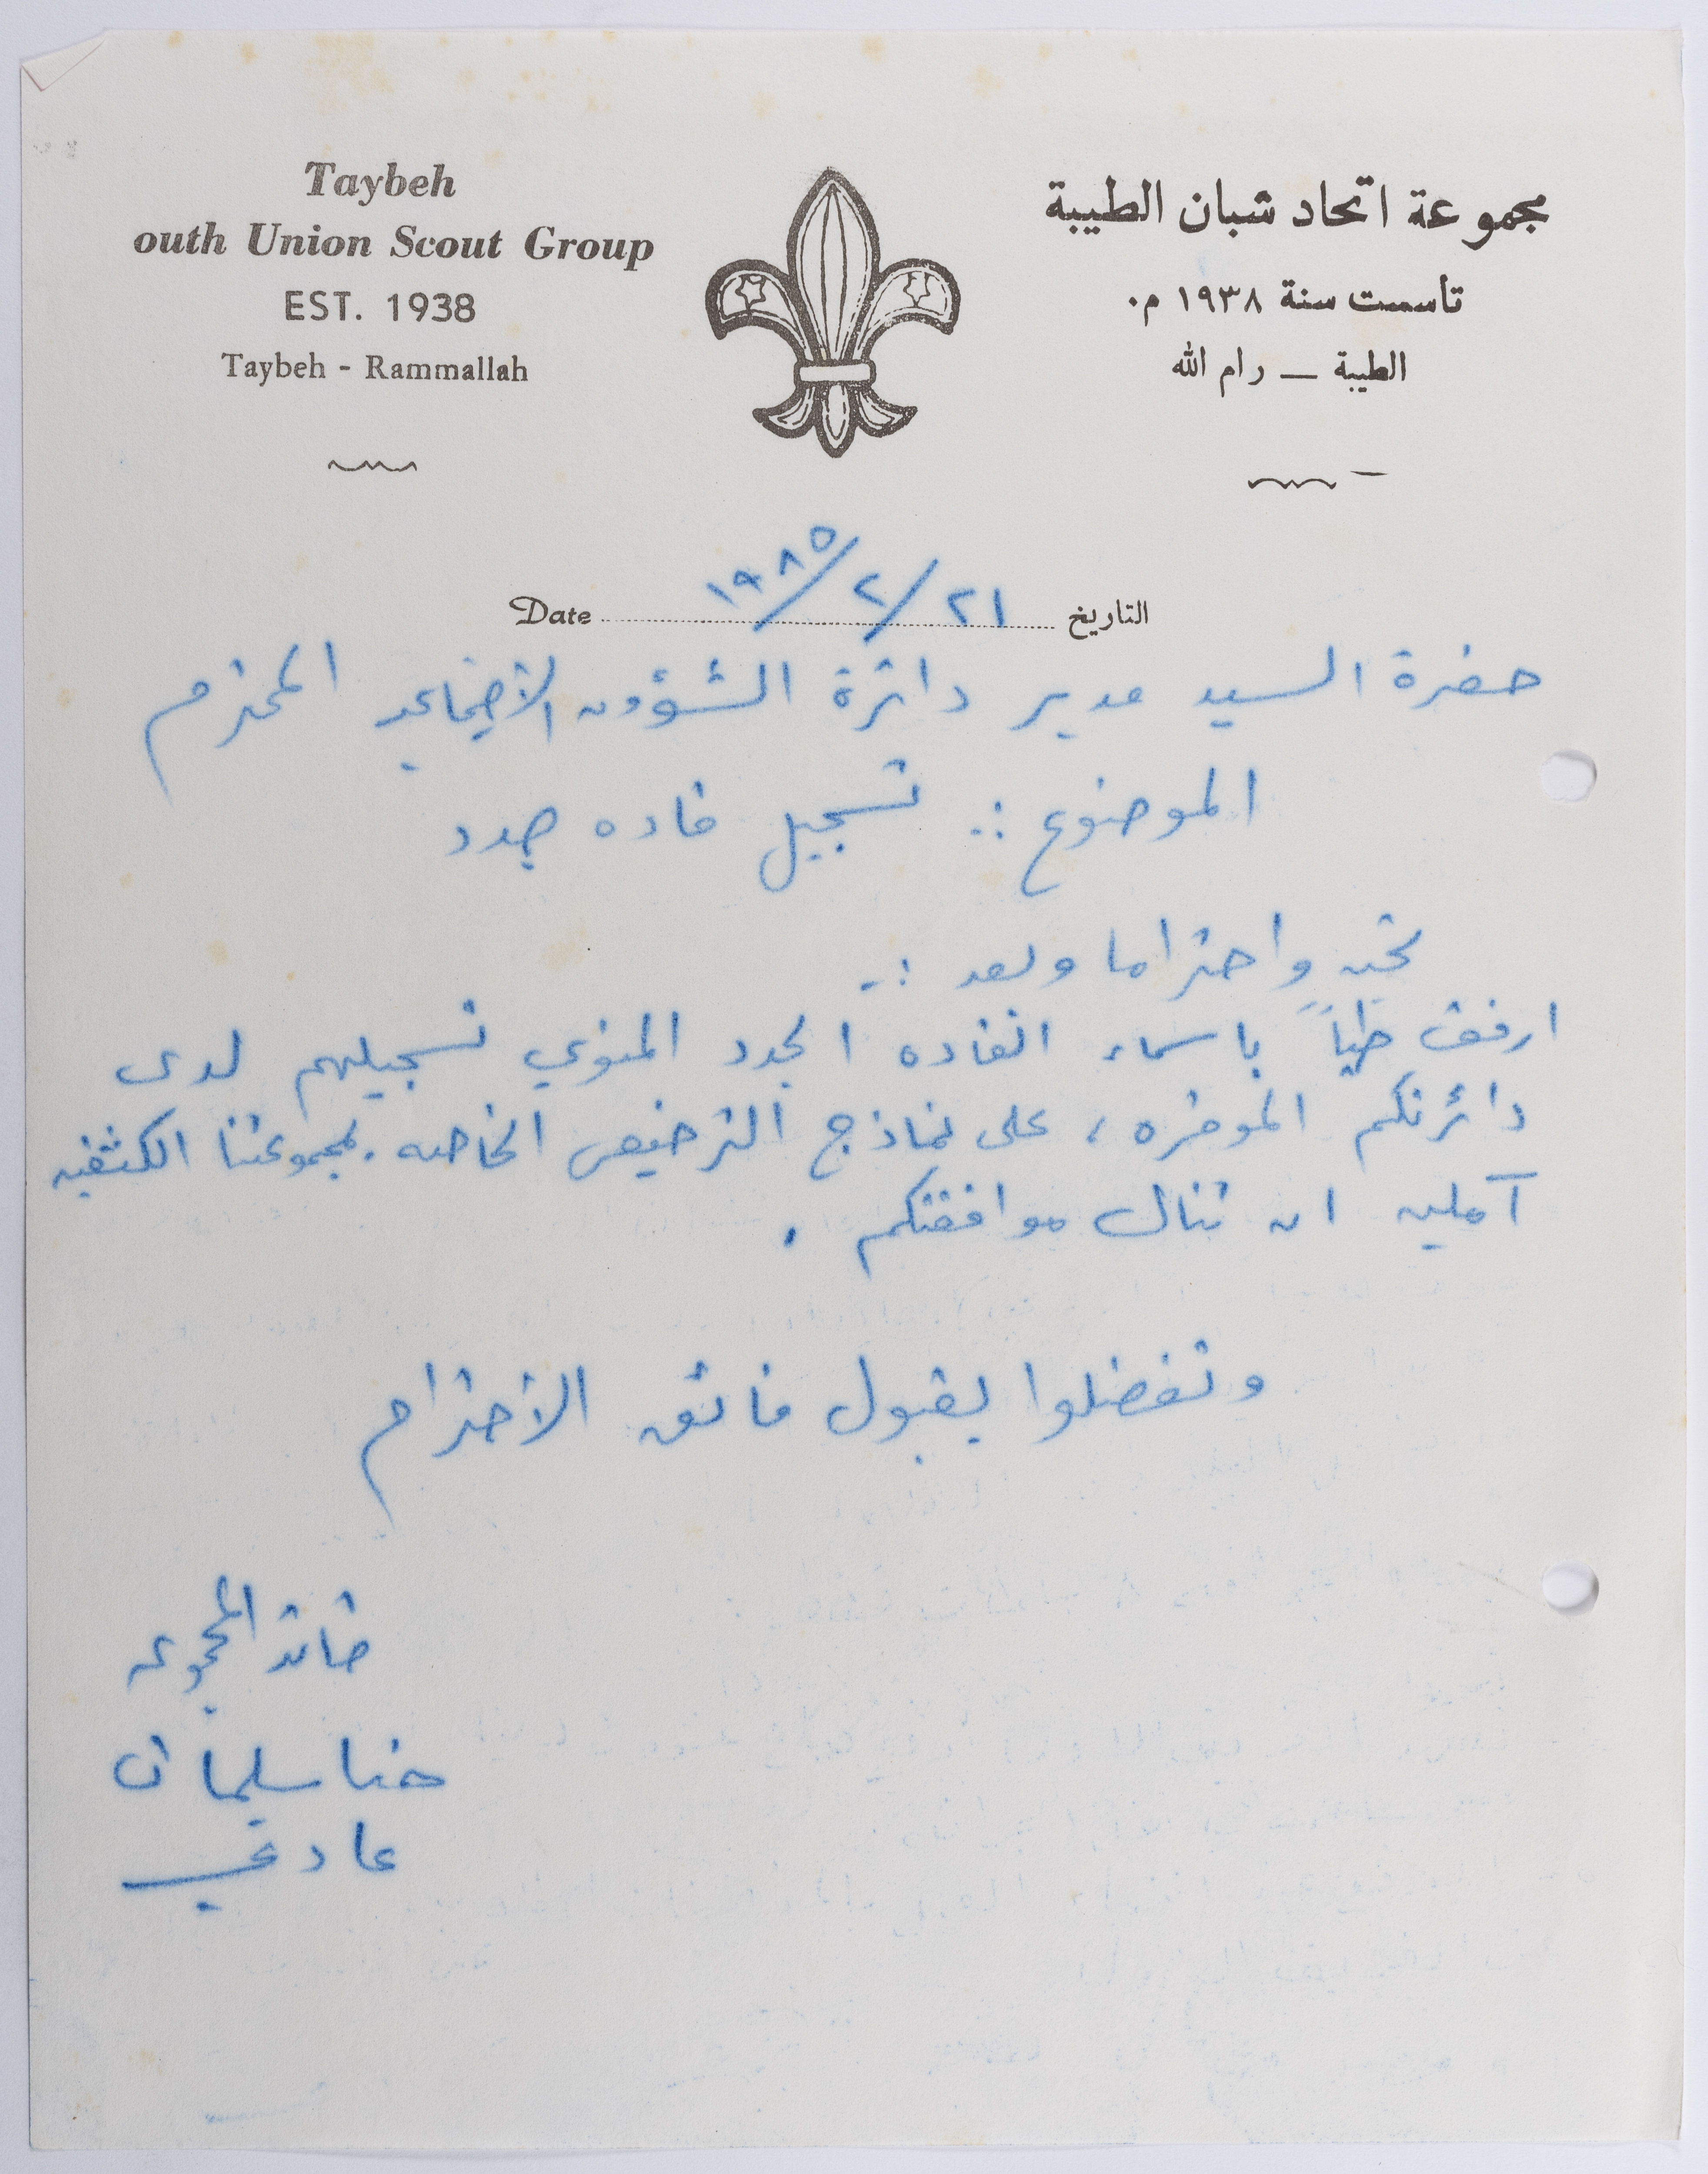 Taybeh
outh Union Scout Group
EST. 1938
Taybeh - Rammallah
مجموعة اتحاد شبان الطيبة
تأسست سنة ١٩٣٨ م.
الطيبة — رام الله
Date ١٩٨٥/٢/٢١ التاريخ
حضرة السيد مدير دائرة الشؤون الاجتماعيه المحترم
الموضوع :. تسجيل قاده جدد
تحيه واحتراما وبعد :-
ارفق طياً باسماء القاده الجدد المنوي تسجيلهم لدى
دائرتكم الموقره ، على نماذج الترخيص الخاصه بمجموعتنا الكشفيه
آملين ان تنال موافقتكم .
وتفضلوا بقبول فائق الاحترام
قائد المجموعه
حنا سليمان
عادي